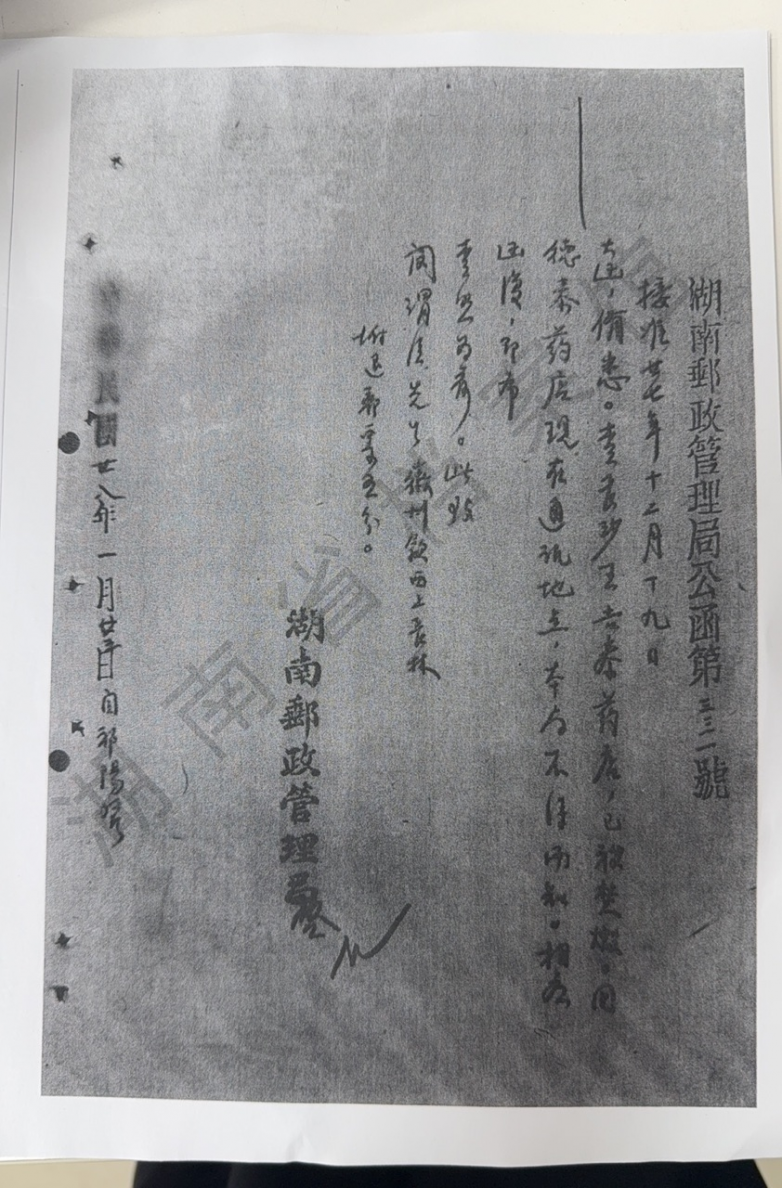 湖南郵政管理局公函第三三一號
接准廿七年十二月十九日
大函，備悉。查長沙王吉泰药店，已被焚燬。同
德泰药店現在通訊地点，本局不得而知。相应
函復，即布
查照为荷。此致
闵渭清先生 徽州歙西上長林
附退郵票五分。
湖南郵政管理局啓
中華民國廿八年一月廿日自祁陽發
湖南省檔案館